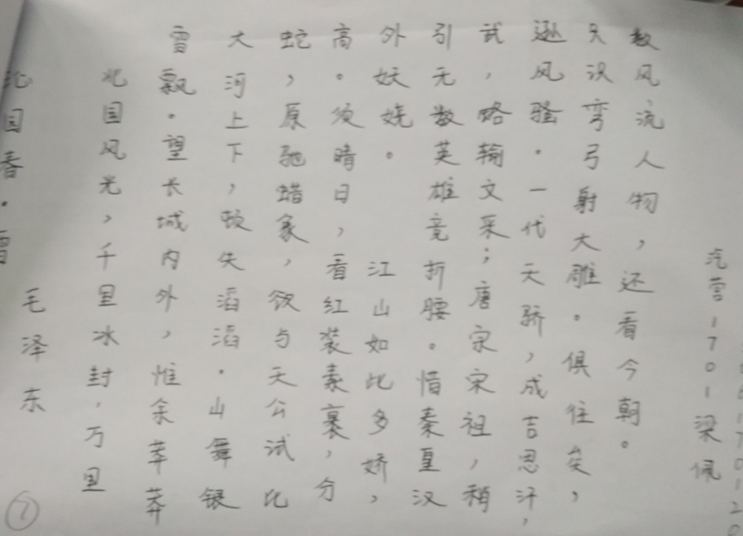 沁园春·雪
毛泽东
北国风光,千里冰封,万里
雪飘。望长城内外,惟余莽莽
大河上下,顿失滔滔。山舞银
蛇,原驰蜡象,欲与天公试比
高。须晴日,看红装素裹,分
外妖娆。
江山如此多娇,
引无数英雄竞折腰。惜秦皇汉
武,略输文采;唐宗宋祖,稍
逊风骚。一代天骄,成吉思汗,
只识弯弓射大雕。俱往矣,
数风流人物,还看今朝。
汽营1701梁佩
⑦